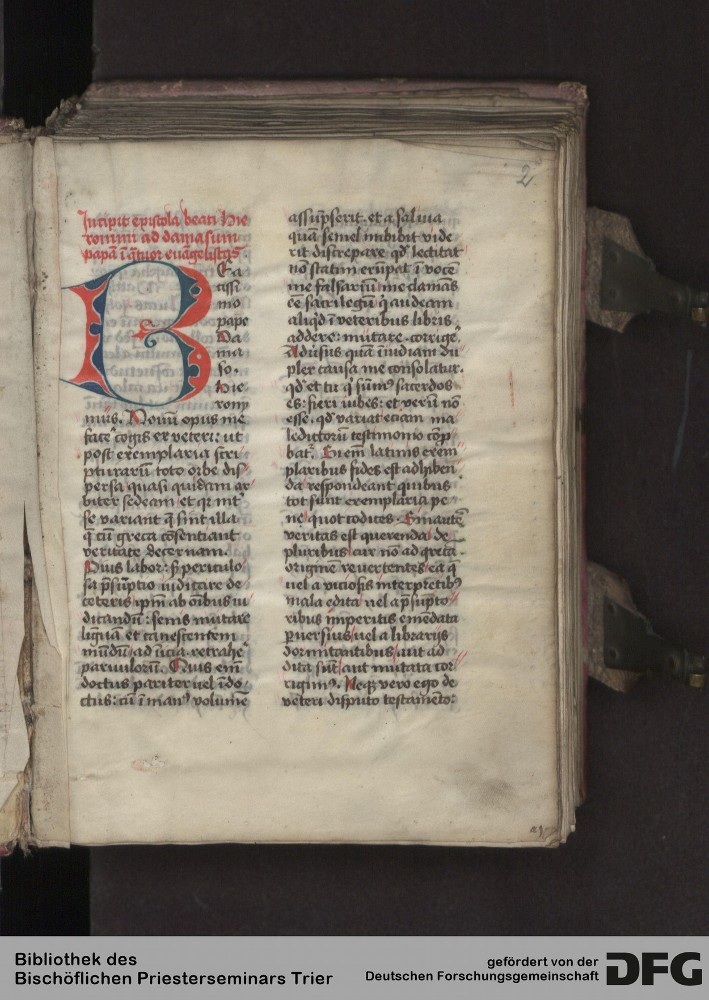 2
Incipit epistola beati Hie
ronimi ad damasum
papā ī q̄tuor euāgelistas
BEa
tissi
mo
pape
Da
ma
so.
Hie
rony
mus. Nouū opus me
facē cogis ex veteri: ut
post exemplaria scri
pturarū toto orbe dis
persa quasi quidam ar
biter sedeam et qr̄ int̄
se variant q̄ sint illa
q̄ cū greca cōsentiant
veritate decernam.
Pius labor: sȝ periculo
sa p̄sūptio iudicare de
ceteris ip̄m ab oībus iu
dicandū: senis mutare
liguā et canescentem
mūdū ad īicia retrahē
paruulorū. Quis enī
doctus pariter uel īdo
ctus: cū ī manꝰ volumē
assūpserit. et a saliua
quā semel inbibit vide
rit discrepare qđ lectitat
nō statim erūpat ī vocē
me falsariū me clamās
ēe sacrilegū q̇ audeam
aliqđ ī veteribus libris
addere: mutare. corrigē.
Aduſus quā īuidiam du
pler causa me consolatur.
qđ et tu q̇ sūmꝰ sacerdos
es: fieri iubes: et verū nō
esse. qđ variat etiam ma
ledictorū testimonio cōp
bat̄. Si enī latinis exem
plaribus fides est adhiben
da respondeant quibus
tot sunt exemplaria pe
ne quot codices. Sin autē
veritas est querenda de
pluribus cur nō ad grecā
originē reuertentes ea q̄
uel a viciosis interp̄tibꝰ
mala edita uel a p̄sūpto
ribus imperitis emēdata
ꝑuersius uel a librarijs
dormitantibus aut ad
dita sūt aut mutata cor
rigimꝰ. Neqȝ vero ego de
veteri disputo testamēto:
Bibliothek des
Bischöflichen Priesterseminars Trier
gefördert von der
Deutschen Forschungsgemeinschaft
DFG